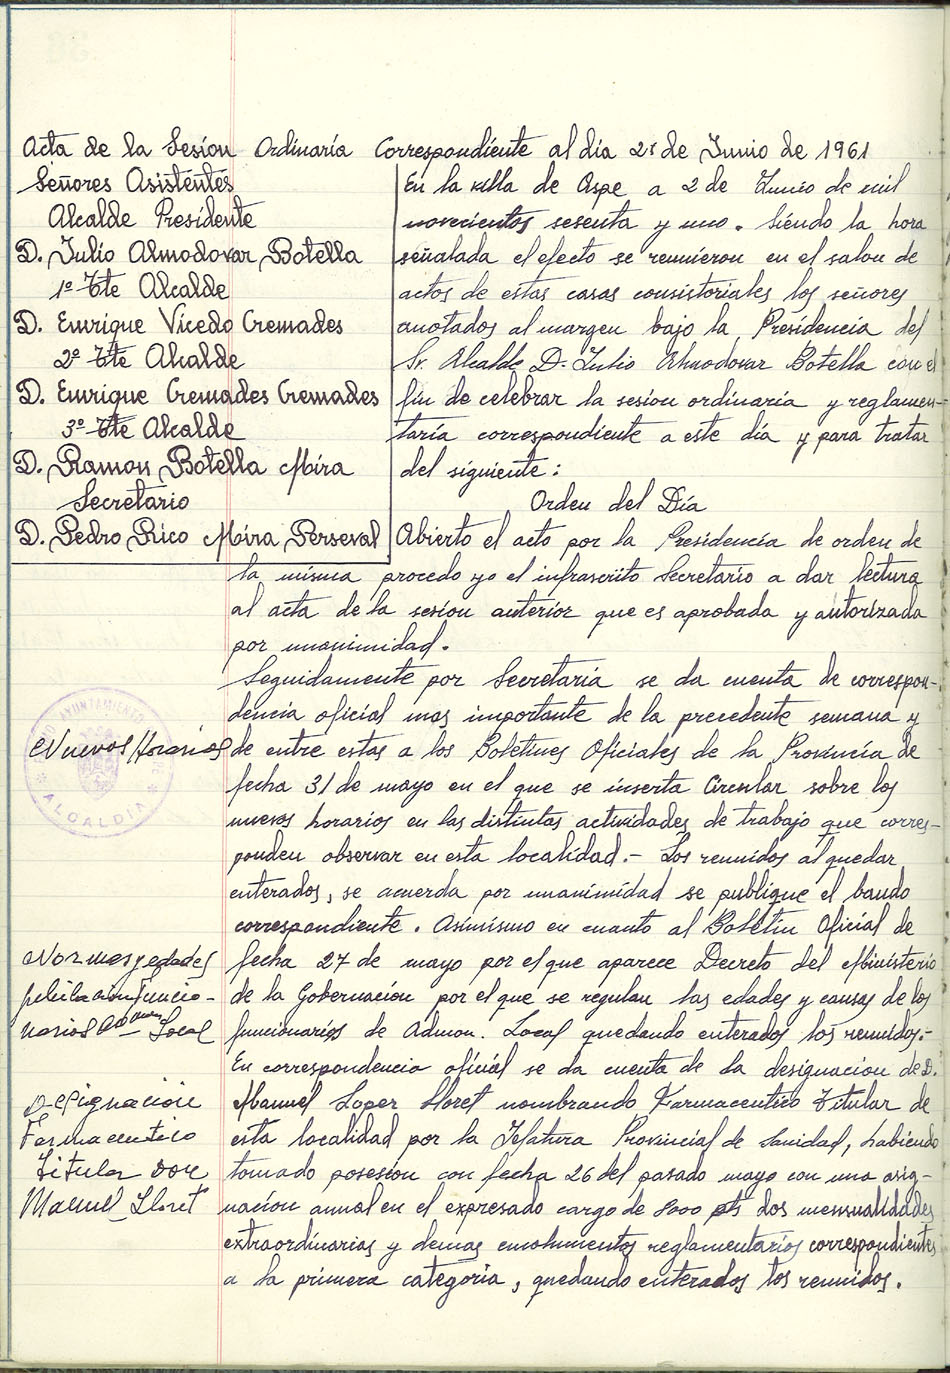 Acta de la Sesión Ordinaria Correspondiente al día 2 de Junio de 1961
Señores Asistentes
Alcalde Presidente
D. Julio Almodovar Botella
1º Tte Alcalde
D. Enrique Vicedo Cremades
2º Tte Alcalde
D. Enrique Cremades Cremades
3º Tte Alcalde
D. Ramon Botella Mira
Secretario
D. Pedro Rico Mira Perseval
En la villa de Aspe a 2 de Junio de mil
novecientos sesenta y uno. Siendo la hora
señalada el efecto se reunieron en el salon de
actos de estas casas consistoriales los señores
anotados al margen bajo la Presidencia del
Sr. Alcalde D. Julio Almodovar Botella con el
fin de celebrar la sesion ordinaria y reglamen-
taria correspondiente a este día y para tratar
del siguiente:
Orden del Día
Abierto el acto por la Presidencia de orden de
la misma procedo yo el infrascrito Secretario a dar lectura
al acta de la sesion anterior que es aprobada y autorizada
por unanimidad.
Seguidamente por Secretaria se da cuenta de correspon-
dencia oficial mas importante de la precedente semana y
Nuevos Horarios
de entre estas a los Boletines Oficiales de la Provincia de
fecha 31 de mayo en el que se inserta Circular sobre los
nuevos horarios en las distintas actividades de trabajo que corres-
ponden observar en esta localidad.- Los reunidos al quedar
enterados, se acuerda por unanimidad se publique el bando
correspondiente. Asimismo en cuanto al Boletin Oficial de
Normas y edades
jubilacion funcio-
narios Local
fecha 27 de mayo por el que aparece Decreto del Ministerio
de la Gobernacion por el que se regulan las edades y causas de los
funcionarios de Admon. Local quedando enterados los reunidos.-
En correspondencia oficial se da cuenta de la designacion de D.
Designación
Farmaceutico
Titular Don
Manuel Lloret
Manuel Soper Lloret nombrando Farmaceutico Titular de
esta localidad por la Jefatura Provincial de Sanidad, habiendo
tomado posesion con fecha 26 del pasado mayo con una asig-
nacion anual en el expresado cargo de 8000 pts dos mensualidades
extraordinarias y demas emolumentos reglamentarios correspondientes
a la primera categoria, quedando enterados los reunidos.
AYUNTAMIENTO
ALCALDIA